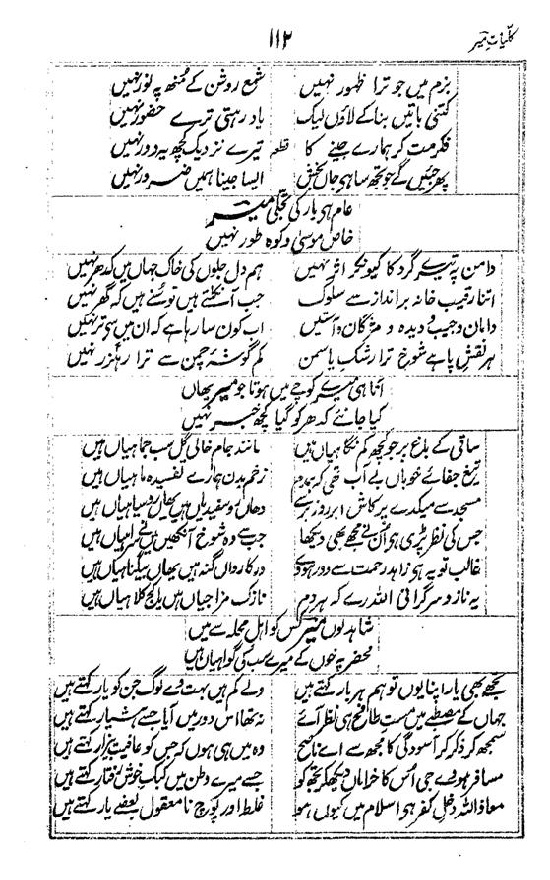 کلّیاتِ میر
۱۱۲
بزم میں جو ترا ظہور نہیں شمع روشن کے مُنھ پہ نور نہیں
کتنی باتیں بنا کے لاؤں لیک یاد رہتی ترے حضور نہیں
فکر مت کر ہمارے جینے کا قطعہ تیرے نزدیک کچھ یہ دور نہیں
پھر جئیں گے جو تجھ سا ہی جاں بخش ایسا جینا ہمیں ضرور نہیں
عام ہی یار کی تجلّی میر
خاص موسیٰ و کوہ طور نہیں
دامن پہ تیرے گرد کا کیونکر اثر نہیں ہم دل جلوں کی خاک جہاں میں کدھر نہیں
اتنا رقیب خانہ برانداز سے سلوک جب آنکلتے ہیں تو سُنے ہیں کہ گھر نہیں
دامان و جیب و دیدہ و مژگان و آستیں اب کون سا رہا ہے کہ ان میں سے تر نہیں
ہر نقشِ پا ہے شوخ ترا رشکِ یاسمن کم گوشۂ چمن سے ترا رہگزر نہیں
آنا ہی تیرے کوچے میں ہوتا جو میر یھاں
کیا جانئے کدھر کو گیا کچھ خبر نہیں
ساقی کے باغ پر جو کچھ کم نگاہیاں ہیں مانند جام خالی گل سب جماہیاں ہیں
تیغ جفائے خوباں بے آب تھی کہ ہمدم زخم بدن ہمارے تفسیدہ ماہیاں ہیں
مسجد سے میکدے پر کاش ابر روز برسے وھاں رو سفیدیاں ہیں یھاں روسیاہیاں ہیں
جس کی نظر پڑی ہی اُن نے مجھے بھی دیکھا جب سے وہ شوخ آنکھیں میں نے سراہیاں ہیں
غالب تو یہ ہی زاہد رحمت سے دور ہووے درکار واں گنہ ہیں یھاں بیگناہیاں ہیں
یہ ناز و سرگرانی اللہ رے کہ ہر دم نازک مزاجیاں ہیں یا کج کلاہیاں ہیں
شاہد لوں میر کس کو اہل محلہ سے میں
محضر پہ خوں کے میرے سب کی گواہیاں ہیں
تجھے بھی یار اپنا یوں تو ہم ہر بار کہتے ہیں ولے کم ہیں بہت وے لوگ جن کو یار کہتے ہیں
جہاں کے مصطبے میں مست طافح ہی نظر آئے نہ تھا اس دور میں آیا جسے ہشیار کہتے ہیں
سمجھ کر ذکر کر آسودگی کا مجھ سے اے ناصح وہ میں ہی ہوں کہ جس کو عافیت بیزار کہتے ہیں
مسافر ہووے جی اُس کا خراماں دیکھ کر تجھ کو جسے میرے وطن میں کبک خوش رفتار کہتے ہیں
معاذاللہ دخلِ کفر ہی اسلام میں کیوں ہو غلط اور پوچ نامعقول بعضے یار کہتے ہیں